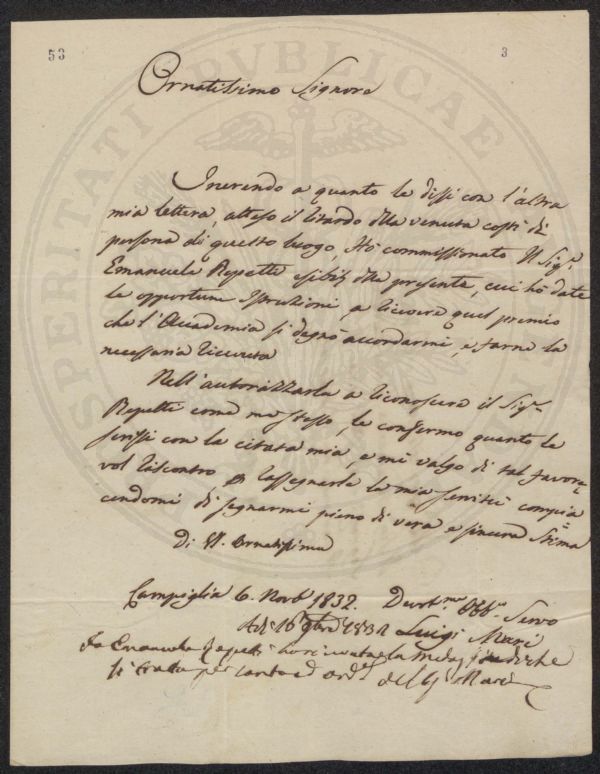 53
3
Ornatissimo Signore
Inerendo a quanto le dissi con l'altra
mia lettera, atteso il ritardo della venuta costì di
persona di questo luogo, Hò commissionato Il Sig.r
Emanuele Repetti esibit. della presente, cui hò date
le opportune Istruzioni, a ricevere quel premio
che l'Accademia si degnò accordarmi, e farne la
necessaria ricevuta
Nell'autorizzarla a riconoscere il Sig.r
Repetti come me stesso, le confermo quanto le
scrissi con la citata mia, e mi valgo di tal favore=
vol riscontro, rassegnarle la mia servitù compia
cendomi di segnarmi pieno di vera e sincera Stima
Di V. Ornatissima
Campiglia 6. Novb. 1832. Devot.mo Obb.o Servo
Luigi Mari
Adì 16 9bre 1832
Io Emanuele Repetti ho ricevuta la di che
si tratta per conto ed ord.e del Sig. Mari
SPERITATI PUBLICAE